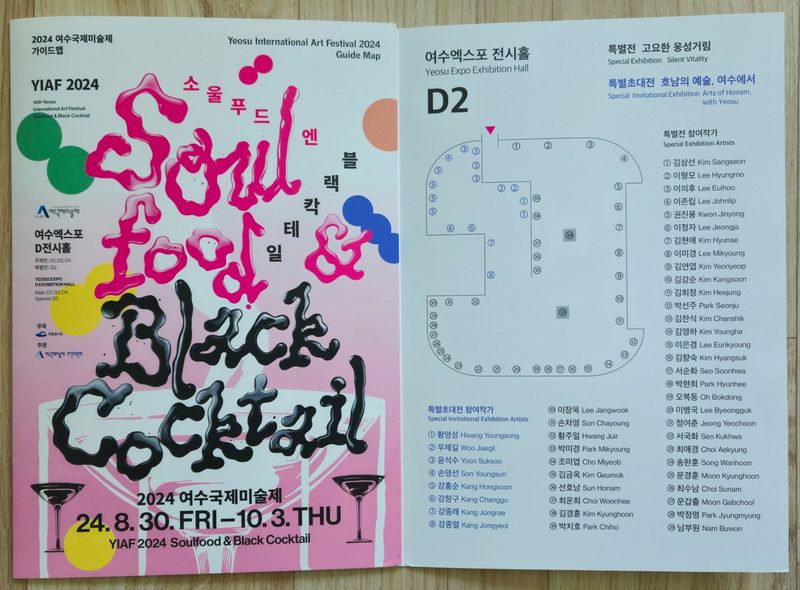 2024 여수국제미술제
가이드맵
Yeosu International Art Festival 2024
Guide Map
YIAF 2024
14th Yeosu
International Art Festival
Soulfood & Black Cocktail
소울푸드 엔 블랙 칵테일
Soul
food &
Black
Cocktail
YIAF 여수국제미술제
여수엑스포
D전시홀
주제전: D1, D3, D4
특별전: D2
YEOSU EXPO
D EXHIBITION HALL
Main D1, D3, D4
Special D2
주최
여수시
주관
2024 여수국제미술제
24. 8. 30. FRI – 10. 3. THU
YIAF 2024 Soulfood & Black Cocktail
여수엑스포 전시홀
Yeosu Expo Exhibition Hall
D2
특별전 고요한 웅성거림
Special Exhibition Silent Vitality
특별초대전 호남의 예술, 여수에서
Special Invitational Exhibition Arts of Honam,
with Yeosu
특별전 참여작가
Special Exhibition Artists
① 김상선 Kim Sangseon
② 이형모 Lee Hyungmo
③ 이의후 Lee Euihoo
④ 이존립 Lee Johnlip
⑤ 권진용 Kwon Jinyong
⑥ 이정자 Lee Jeongja
⑦ 김현애 Kim Hyunae
⑧ 이미경 Lee Mikyoung
⑨ 김연엽 Kim Yeonyeop
⑩ 김강순 Kim Kangsoon
⑪ 김희정 Kim Heejung
⑫ 박선주 Park Seonju
⑬ 김찬식 Kim Chanshik
⑭ 김영하 Kim Youngha
⑮ 이은경 Lee Eunkyoung
⑯ 김향숙 Kim Hyangsuk
⑰ 서순화 Seo Soonhwa
⑱ 박현희 Park Hyunhee
⑲ 오복동 Oh Bokdong
⑳ 이병국 Lee Byeongguk
㉑ 정여춘 Jeong Yeochoon
㉒ 서국화 Seo Kukhwa
㉓ 최애경 Choi Aekyung
㉔ 송완훈 Song Wanhoon
㉕ 문경훈 Moon Kyunghoon
㉖ 최수남 Choi Sunam
㉗ 문갑출 Moon Gabchool
㉘ 박정명 Park Jyungmyung
㉙ 남부원 Nam Buwon
특별초대전 참여작가
Special Invitational Exhibition Artists
① 황영성 Hwang Youngsung
② 우제길 Woo Jaegil
③ 윤석수 Yoon Suksoo
④ 손영선 Son Youngsun
⑤ 강홍순 Kang Hongsoon
⑥ 강창구 Kang Changgu
⑦ 강종래 Kang Jongrae
⑧ 강종열 Kang Jongyeol
㉚ 이장욱 Lee Jangwook
㉛ 손차영 Son Chayoung
㉜ 황주일 Hwang Juir
㉝ 박미경 Park Mikyoung
㉞ 조미엽 Cho Miyeob
㉟ 김금옥 Kim Geumok
㊱ 선호남 Sun Honam
㊲ 최운희 Choi Woonhee
㊳ 김경훈 Kim Kyunghoon
㊴ 박치호 Park Chiho